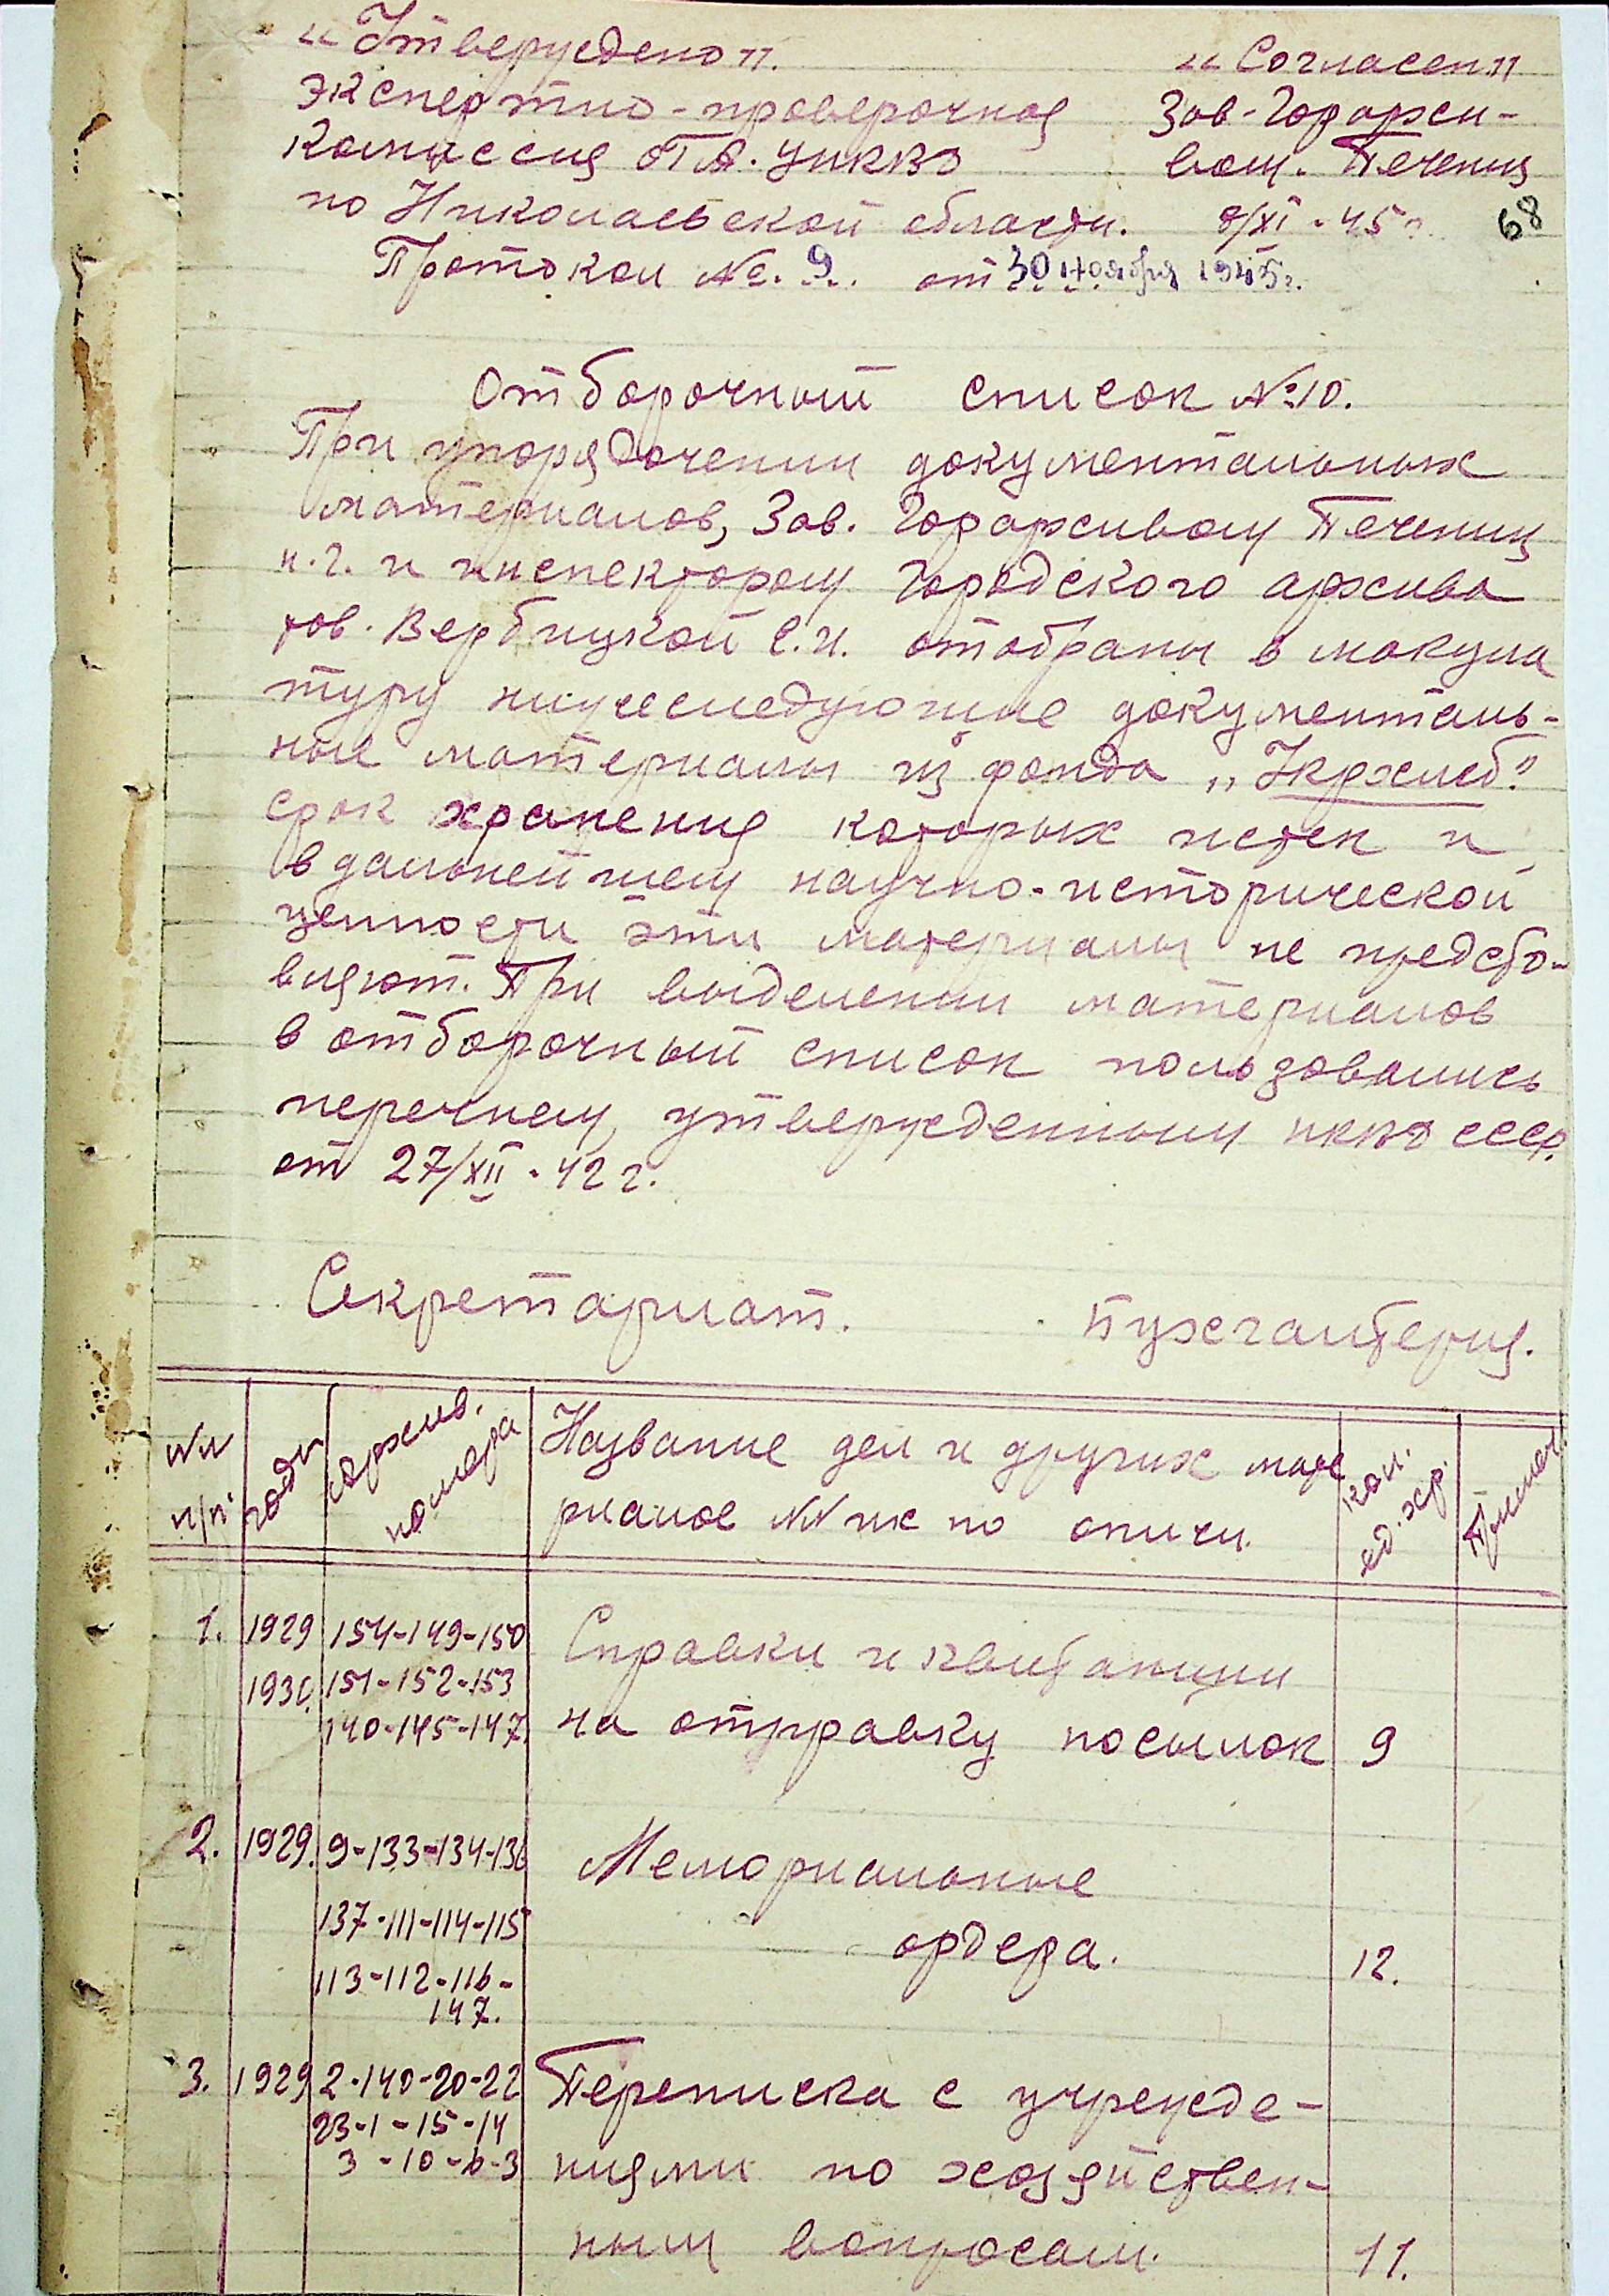 „Утверждено".
Экспертно-проверочная
Комиссия ОГА. УНКВД
по Николаевской области.
Протокол №. 9. от 30 ноября 1945г.
„Согласен"
Зав. Горархи-
вом. Печениц
8/XI - 45 г.
68
Отборочный список №10.
При упорядочении документальных
материалов, Зав. Горархивом Печениц
и инспектором Городского архива
тов. Вербицкой С.И. отобраны в макула
туру нижеследующие документаль-
ные материалы из фонда „Укрхлеб".
срок хранения которых истек и
в дальнейшем научно-исторической
ценности эти материалы не предста-
вляют. При выделении материалов
в отборочный список пользовались
перечнем, утвержденным НКВД СССР.
от 27/XII - 42 г.
Секретариат. Бухгалтерия.
№№ п/п. годы архив. номера Название дел и других мате кол. ед. хр. Примеч.
риалов №№ их по описи.
1. 1929 154-149-150 Справки и квитанции
1930. 151-152-153
140-145-147. на отправку посылок 9
2. 1929. 9-133-134-136 Мемориальные
137-111-114-115
ордера. 12.
113-112-116-
147.
3. 1929 2-140-20-22 Переписка с учрежде-
23-1-15-14
3-10-6-3 ниями по хозяйствен-
ным вопросам. 11.